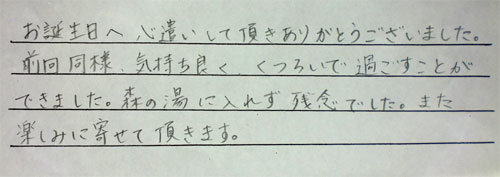 お誕生日へ心遣いして頂きありがとうございました。
前回同様、気持ち良く、くつろいで過ごすことが
できました。森の湯に入れず残念でした。また
楽しみに寄せて頂きます。